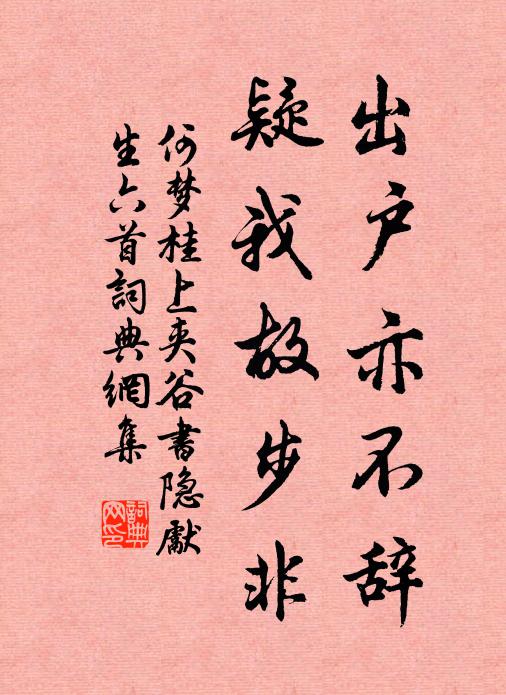 出户亦不辞
疑我故步非
何梦桂上夹谷书隐献
生六首詞典網集
詞典网印